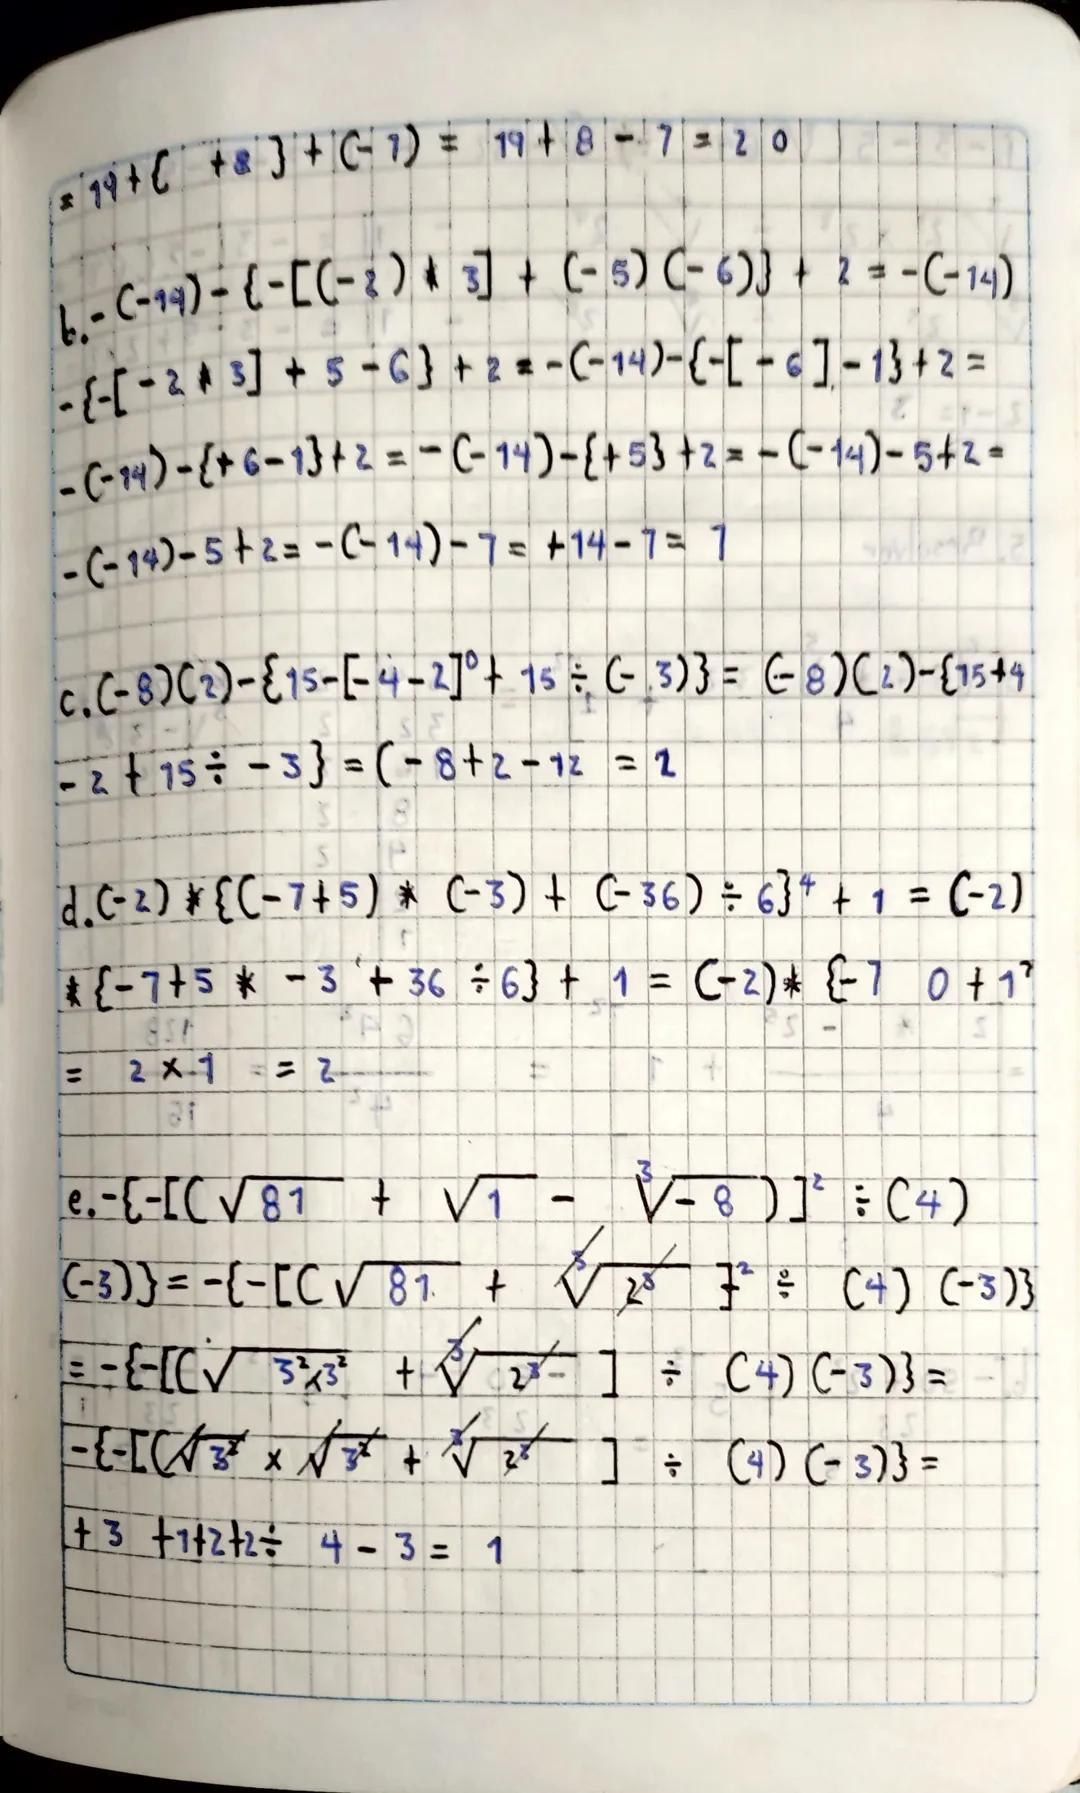 = 19 + { +8 } + (-7) = 19 + 8 - 7 = 20
b. -(-14) - {-[(-2) * 3] + (-5)(-6)} + 2 = -(-14)
-{-[-2 * 3] + 5 - 6} + 2 = -(-14) - {-[-6] - 1} + 2 =
-(-14) - {+6-1} + 2 = -(-14) - {+5} + 2 = -(-14) - 5 + 2 =
-(-14) - 5 + 2 = -(-14) - 7 = +14 - 7 = 7
c. (-8)(2) - {15 - [-4-2]⁰ + 15 ÷ (-3)} = (-8)(2) - {15+4
-2 + 15 ÷ -3} = (-8+2-12 = 2
d. (-2) * {(-7+5) * (-3) + (-36) ÷ 6}⁴ + 1 = (-2)
* {-7+5 * -3 + 36 ÷ 6} + 1 = (-2) * {-7 0 + 1
= 2 x 1 = 2
e. -{-[(√81 + √1 - ³√-8)]² ÷ (4)
(-3)} = -{-[(√81 + ³√2³ ]² ÷ (4) (-3)}
= -{-[(√3²x3² + ³√2³ ] ÷ (4) (-3)} =
-{-[(√3² x √3² + ³√2³ ] ÷ (4) (-3)} =
+3 +1+2+2 ÷ 4 - 3 = 1